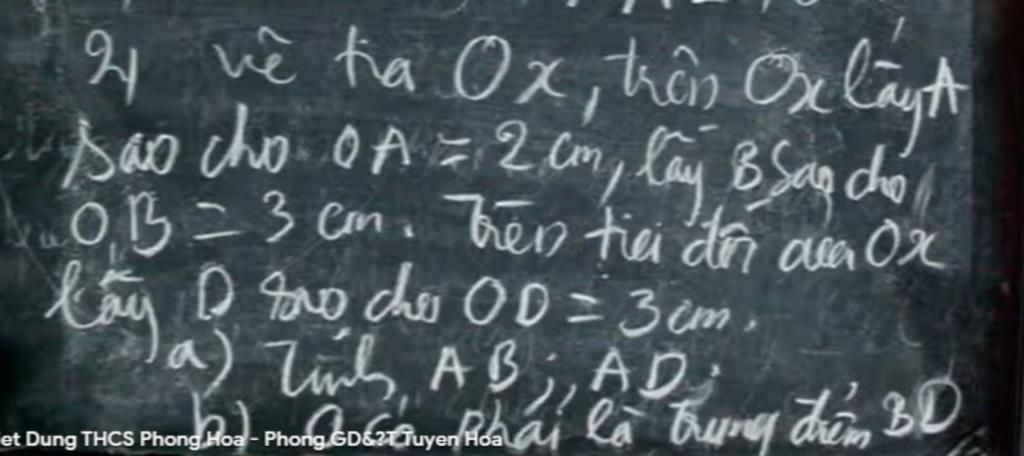 2, Vẽ tia Ox, trên Ox lấy A
sao cho OA = 2 cm, lấy B sao cho
OB = 3 cm. Trên tia đối của Ox
lấy D sao cho OD = 3 cm.
a) Tính AB; AD;
b) O có phải là trung điểm BD
iet Dung THCS Phong Hoa - Phong GD&?T Tuyen Hoa